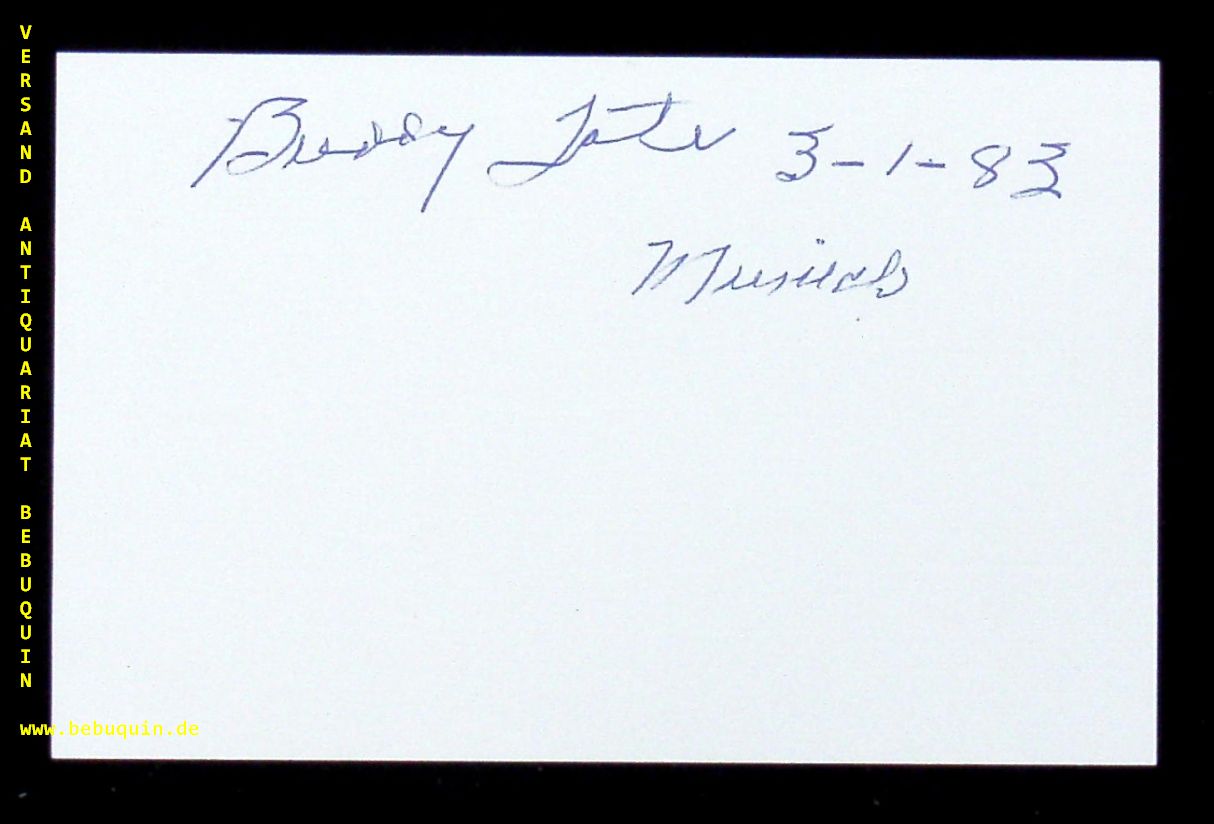 VERSAND ANTIQUARIAT BEBUQUIN
Buddy Tate 3-1-83
Musicals
www.bebuquin.de